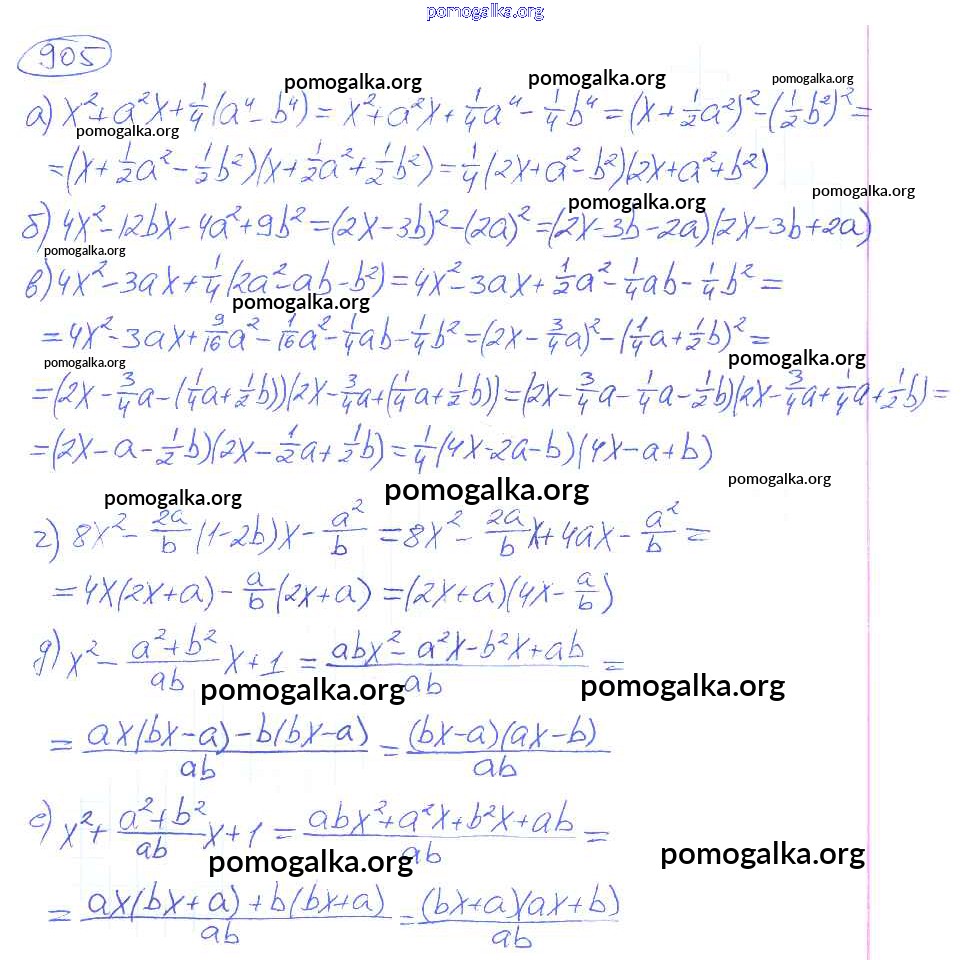 pomogalka.org
905
pomogalka.org pomogalka.org pomogalka.org
а) x²+a²x+1/4(a⁴-b⁴)= x²+a²x+1/4a⁴-1/4b⁴=(x+1/2a²)²-(1/2b²)²=
pomogalka.org
=(x+1/2a²-1/2b²)(x+1/2a²+1/2b²)=1/4(2x+a²-b²)(2x+a²+b²)
pomogalka.org
pomogalka.org
б) 4x²-12bx-4a²+9b²=(2x-3b)²-(2a)²=(2x-3b-2a)(2x-3b+2a)
pomogalka.org
в) 4x²-3ax+1/4(2a²-ab-b²)=4x²-3ax+1/2a²-1/4ab-1/4b²=
pomogalka.org
=4x²-3ax+9/16a²-1/16a²-1/4ab-1/4b²=(2x-3/4a)²-(1/4a+1/2b)²=
pomogalka.org pomogalka.org
=(2x-3/4a-(1/4a+1/2b))(2x-3/4a+(1/4a+1/2b))=(2x-3/4a-1/4a-1/2b)(2x-3/4a+1/4a+1/2b)=
=(2x-a-1/2b)(2x-1/2a+1/2b)=1/4(4x-2a-b)(4x-a+b)
pomogalka.org pomogalka.org pomogalka.org
г) 8x²-2a/b(1-2b)x-a²/b=8x²-2a/b x+4ax-a²/b=
=4x(2x+a)-a/b(2x+a)=(2x+a)(4x-a/b)
д) x²-(a²+b²)/ab x+1=(abx²-a²x-b²x+ab)/ab=
pomogalka.org pomogalka.org
=(ax(bx-a)-b(bx-a))/ab=(bx-a)(ax-b)/ab
е) x²+(a²+b²)/ab x+1=(abx²+a²x+b²x+ab)/ab=
pomogalka.org pomogalka.org
=(ax(bx+a)+b(bx+a))/ab=(bx+a)(ax+b)/ab